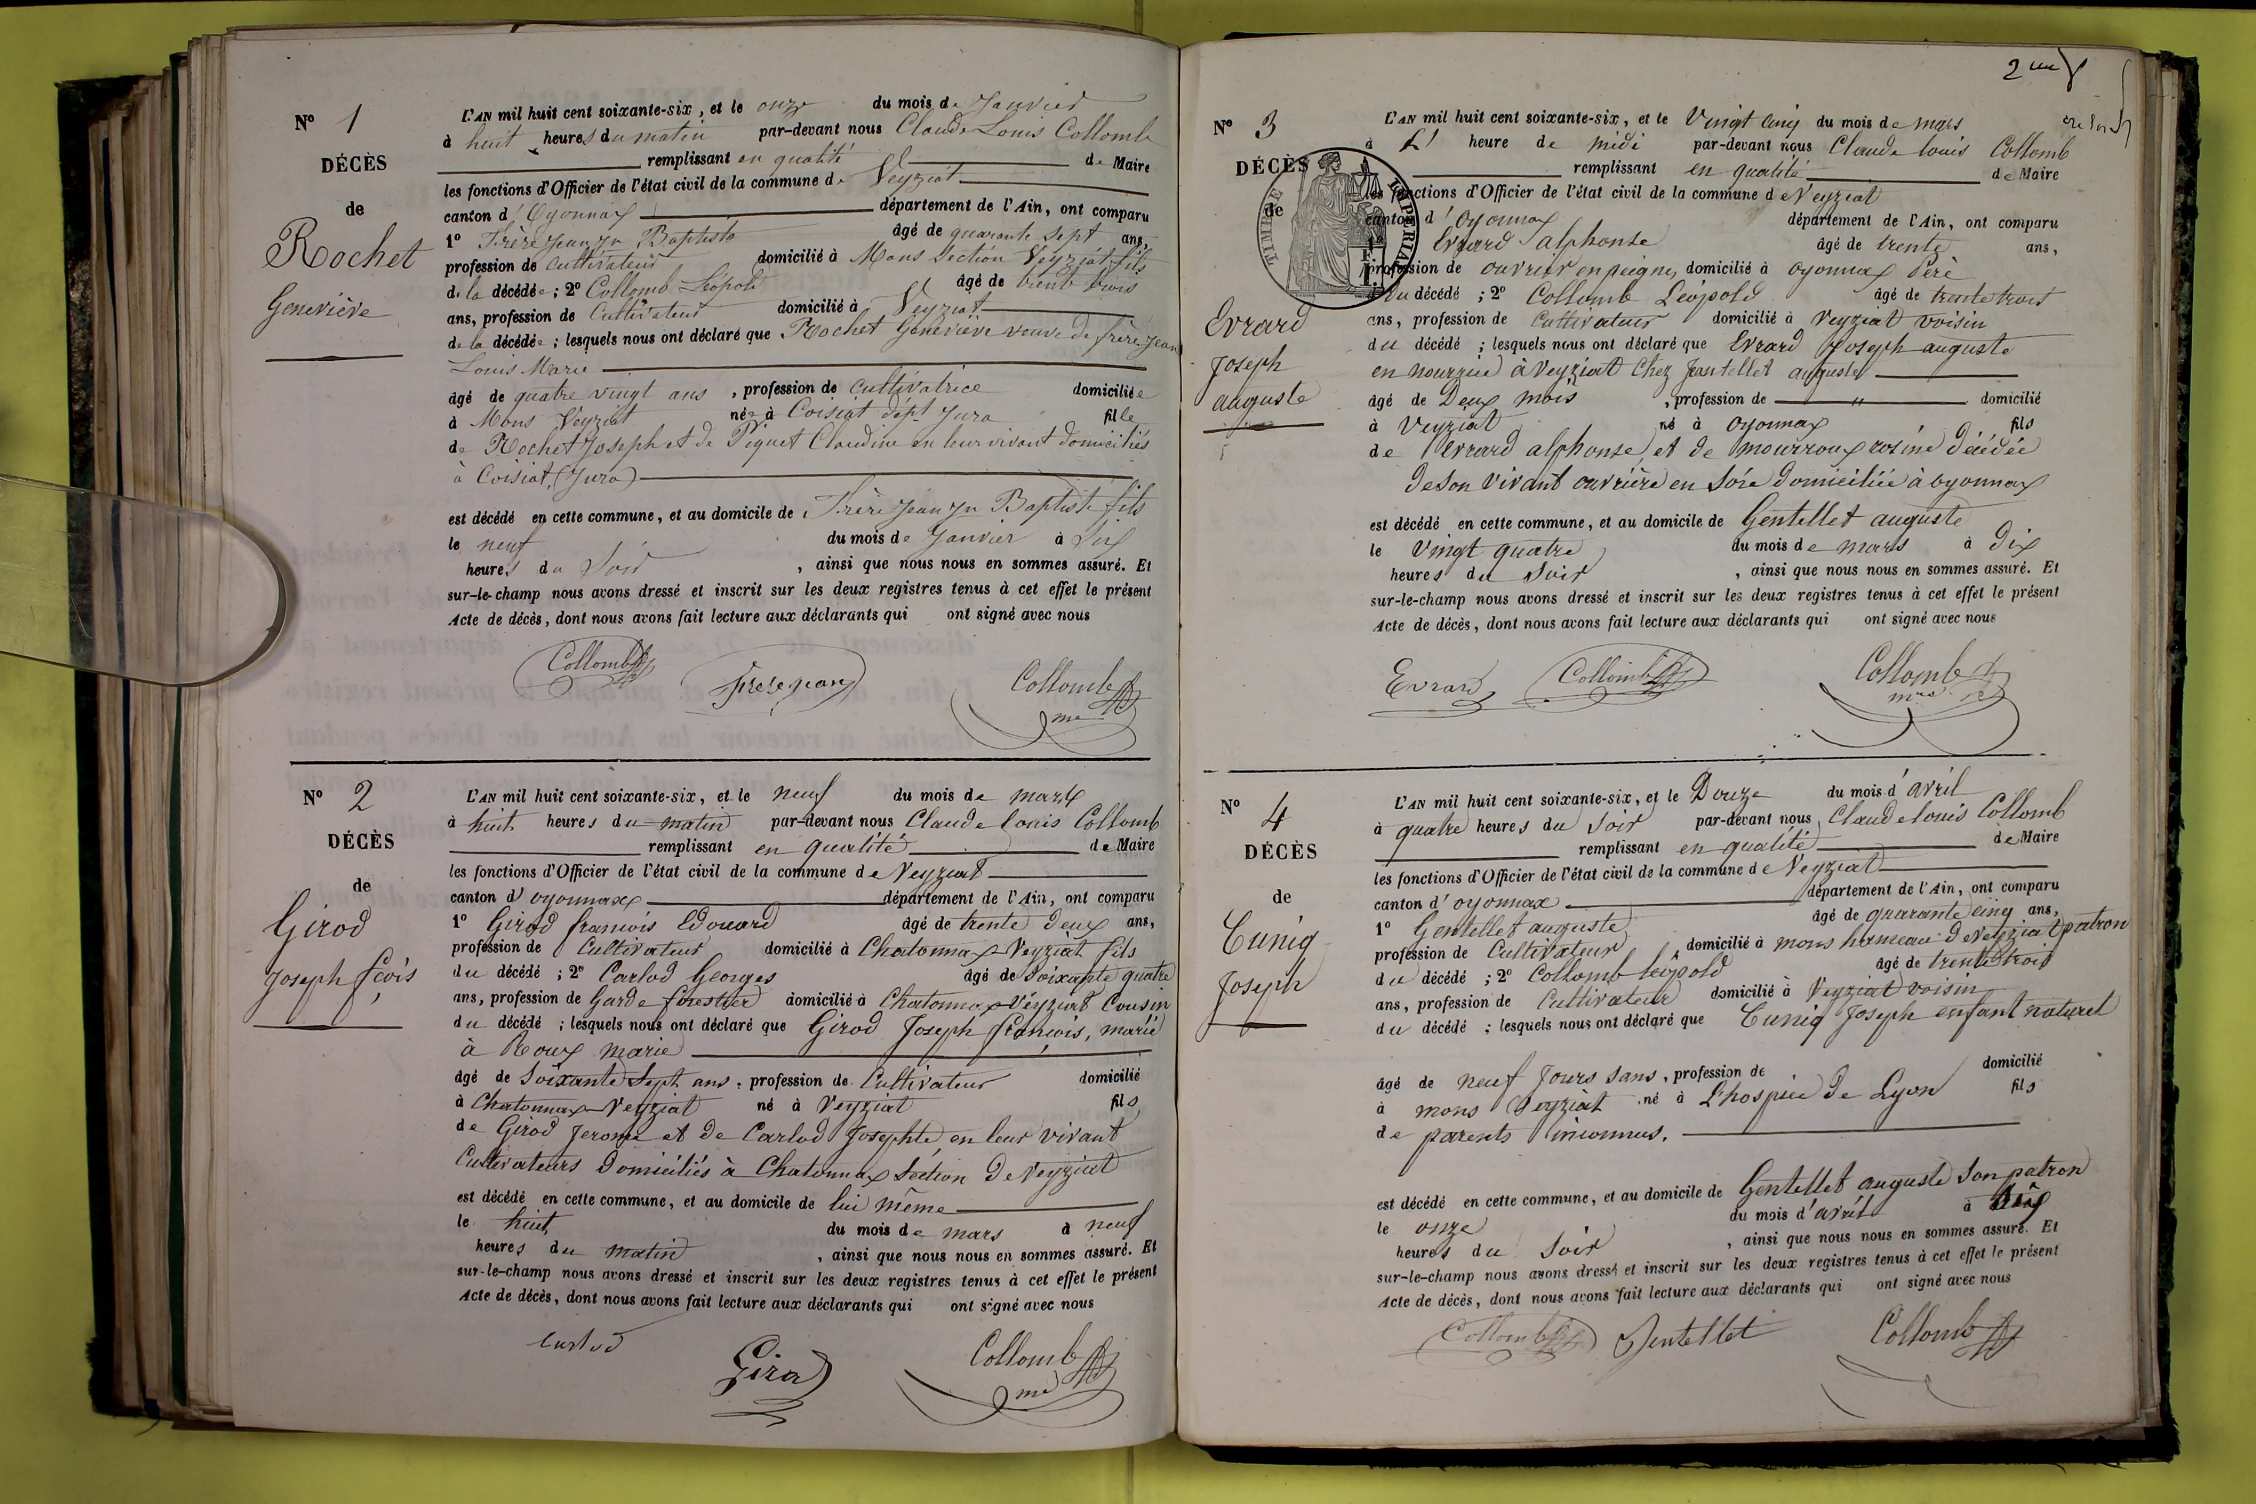 N° 1
DÉCÈS
de
Rochet
Geneviève
L'AN mil huit cent soixante-six, et le onze du mois de Janvier
à huit heures du matin par-devant nous Claude Louis Collomb
remplissant en qualité de Maire
les fonctions d'Officier de l'état civil de la commune de Veyziat
canton d'Oyonnax département de l'Ain, ont comparu
1° Frèrejean Jn Baptiste âgé de quarante sept ans,
profession de cultivateur domicilié à Mons Section Veyziat, fils
de la décédée; 2° Collomb Léopold âgé de trente trois
ans, profession de Cultivateur domicilié à Veyziat
de la décédée; lesquels nous ont déclaré que Rochet Geneviève veuve de frère Jean
Louis Marie
âgé de quatre vingt ans, profession de Cultivatrice domiciliée
à Mons Veyziat née à Coisiat dépt Jura fille
de Rochet Joseph et de Piquet Claudine en leur vivant domiciliés
à Coisiat, (Jura)
est décédé en cette commune, et au domicile de Frère jean Jn Baptiste fils
le neuf du mois de Janvier à
heures du Soir, ainsi que nous nous en sommes assuré. Et
sur-le-champ nous avons dressé et inscrit sur les deux registres tenus à cet effet le présent
Acte de décès, dont nous avons fait lecture aux déclarants qui ont signé avec nous
Collomb Frerejean Collomb
me
N° 2
DÉCÈS
de
Girod
Joseph fçois
L'AN mil huit cent soixante-six, et le neuf du mois de mars
à huit heures du matin par-devant nous Claude Louis Collomb
remplissant en qualité de Maire
les fonctions d'Officier de l'état civil de la commune de Veyziat
canton d'oyonnax département de l'Ain, ont comparu
1° Girod françois Edouard âgé de trente deux ans,
profession de Cultivateur domicilié à Chatonnax Veyziat fils
du décédé; 2° Carlod Georges âgé de soixante quatre
ans, profession de Garde forestier domicilié à Chatonnax Veyziat Cousin
du décédé; lesquels nous ont déclaré que Girod Joseph françois, marié
à Roux marie
âgé de Soixante Sept ans, profession de Cultivateur domicilié
à Chatonnax Veyziat né à Veyziat fils
de Girod Jerome et de Carlod Josephte, en leur vivant
Cultivateurs Domiciliés à Chatonnax Section de Veyziat
est décédé en cette commune, et au domicile de lui même
le huit du mois de mars à neuf
heures du matin, ainsi que nous nous en sommes assuré. Et
sur-le-champ nous avons dressé et inscrit sur les deux registres tenus à cet effet le présent
Acte de décès, dont nous avons fait lecture aux déclarants qui ont signé avec nous
Carlod Girod Collomb
me
2me
N° 3
DÉCÈS
de
TIMBRE IMPERIAL
Evrard
Joseph
auguste
L'AN mil huit cent soixante-six, et le Vingt Cinq du mois de mars
à L' heure de midi par-devant nous Claude Louis Collomb
remplissant en qualité de Maire
les fonctions d'Officier de l'état civil de la commune de Veyziat
canton d'oyonnax département de l'Ain, ont comparu
1° Evrard alphonse âgé de trente ans,
profession de ouvrier en peignes domicilié à oyonnax Père
du décédé; 2° Collomb Léopold âgé de trente trois
ans, profession de Cultivateur domicilié à Veyziat voisin
du décédé; lesquels nous ont déclaré que Evrard Joseph auguste
en nourrice à Veyziat Chez Jentellet auguste
âgé de Deux mois, profession de " domicilié
à Veyziat né à oyonnax fils
de Evrard alphonse, et de mourroux rosine Décédée
De son vivant ouvrière en Soie Domiciliée à oyonnax
est décédé en cette commune, et au domicile de Gentellet auguste
le Vingt quatre du mois de mars à Dix
heures du Soir, ainsi que nous nous en sommes assuré. Et
sur-le-champ nous avons dressé et inscrit sur les deux registres tenus à cet effet le présent
Acte de décès, dont nous avons fait lecture aux déclarants qui ont signé avec nous
Evrard Collomb Collomb
N° 4
DÉCÈS
de
Cuniq
Joseph
L'AN mil huit cent soixante-six, et le Douze du mois d'avril
à quatre heures du Soir par-devant nous Claude Louis Collomb
remplissant en qualité de Maire
les fonctions d'Officier de l'état civil de la commune de Veyziat
canton d'oyonnax département de l'Ain, ont comparu
1° Gentellet auguste âgé de quarante cinq ans,
profession de Cultivateur domicilié à mons hameau de Veyziat patron
du décédé; 2° Collomb Léopold âgé de trente trois
ans, profession de Cultivateur domicilié à Veyziat voisin
du décédé; lesquels nous ont déclaré que Cuniq Joseph enfant naturel
âgé de neuf Jours sans, profession de domicilié
à mons Veyziat né à L'hospice de Lyon fils
de parents inconnus.
est décédé en cette commune, et au domicile de Gentellet auguste Son patron
le onze du mois d'avril à
heures du Soir, ainsi que nous nous en sommes assuré. Et
sur-le-champ nous avons dressé et inscrit sur les deux registres tenus à cet effet le présent
Acte de décès, dont nous avons fait lecture aux déclarants qui ont signé avec nous
Collomb Jentellet Collomb